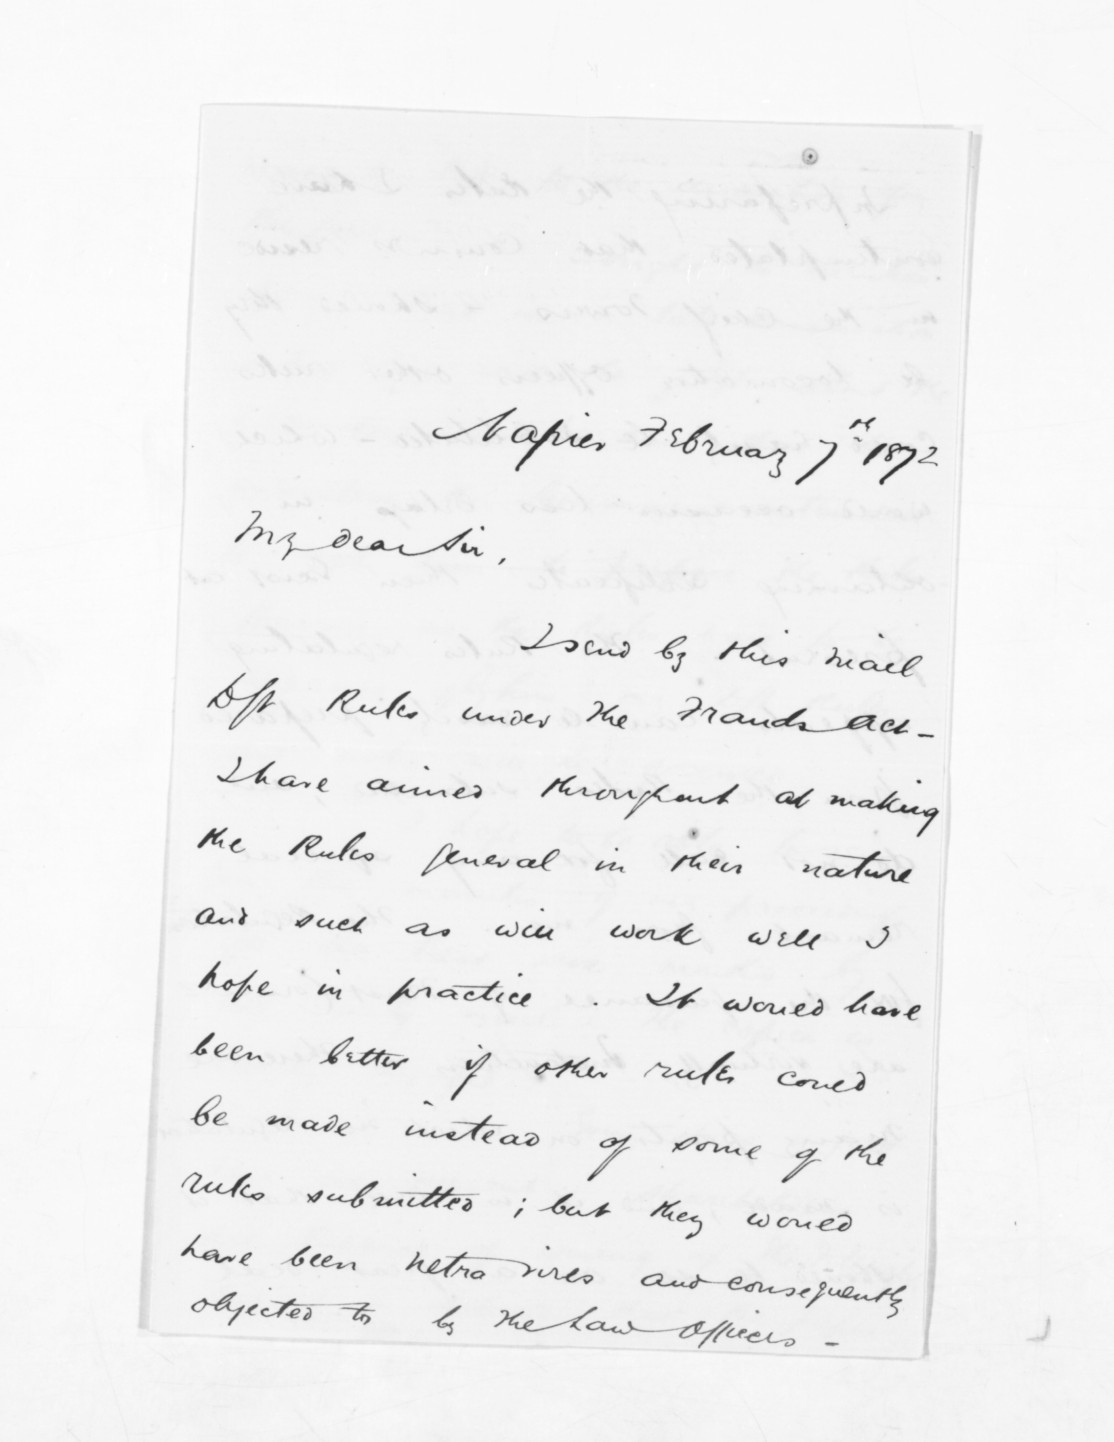 Napier February 7th 1872
My dear Sir,
I send by this mail
Dft Rules under the Frauds Act -
I have aimed throughout at making
the Rules general in their nature
and such as will work well I
hope in practice . It would have
been better if other rules could
be made instead of some of the
rules submitted ; but they would
have been ultra vires and consequently
objected to by the Law Officers -